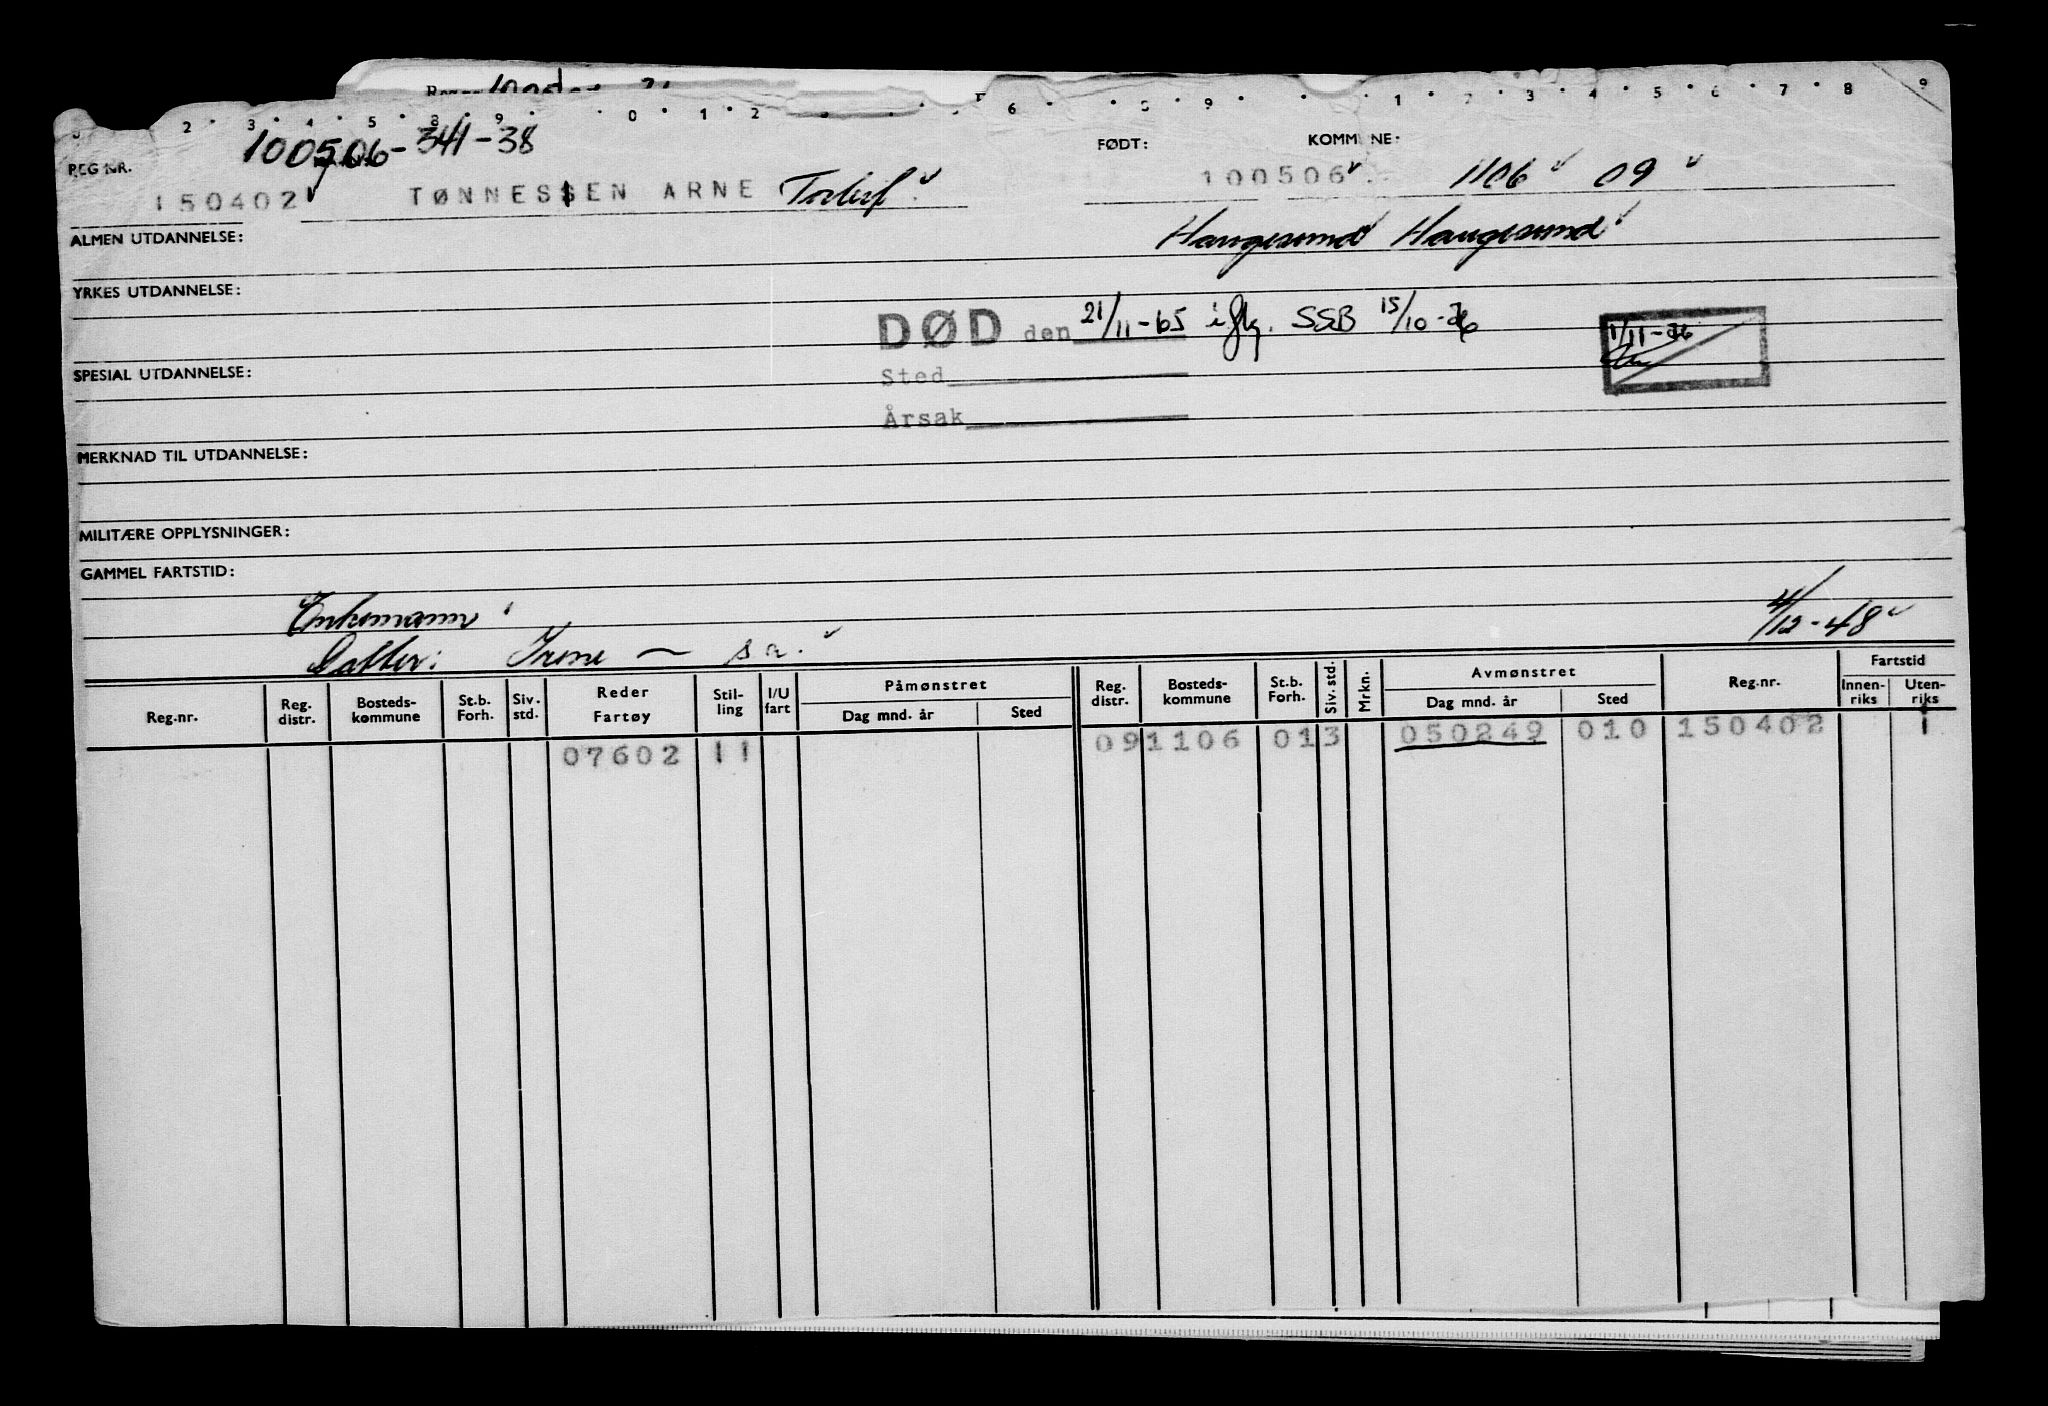 2 · 3 · 4 · 5 · 8 · 9 · · 0 1 2 6 · · 8 9 · · · 1 · 2 · 3 · 4 · 5 · 6 · 7 · 8 9
100506-341-38
REG NR. FØDT: KOMMUNE:
150402 TØNNESSEN ARNE Torleif 100506 1106 09
ALMEN UTDANNELSE: Haugesund Haugesund
YRKES UTDANNELSE:
DØD den 21/11-65 iflg. SSB 15/10-76 1/11-76
SPESIAL UTDANNELSE: Sted
Årsak
MERKNAD TIL UTDANNELSE:
MILITÆRE OPPLYSNINGER:
GAMMEL FARTSTID:
Enkemann 4/12-48
Datter: Irene — s a.
Reg.nr. Reg. distr. Bosteds-kommune St.b. Forh. Siv. std. Reder Fartøy Stil-ling I/U fart Påmønstret Dag mnd. år Sted Reg. distr. Bosteds-kommune St.b. Forh. Siv. std. Mrkn. Avmønstret Dag mnd. år Sted Reg.nr. Fartstid Innen-riks Uten-riks
07602 11 09 1106 01 3 050249 010 150402 1